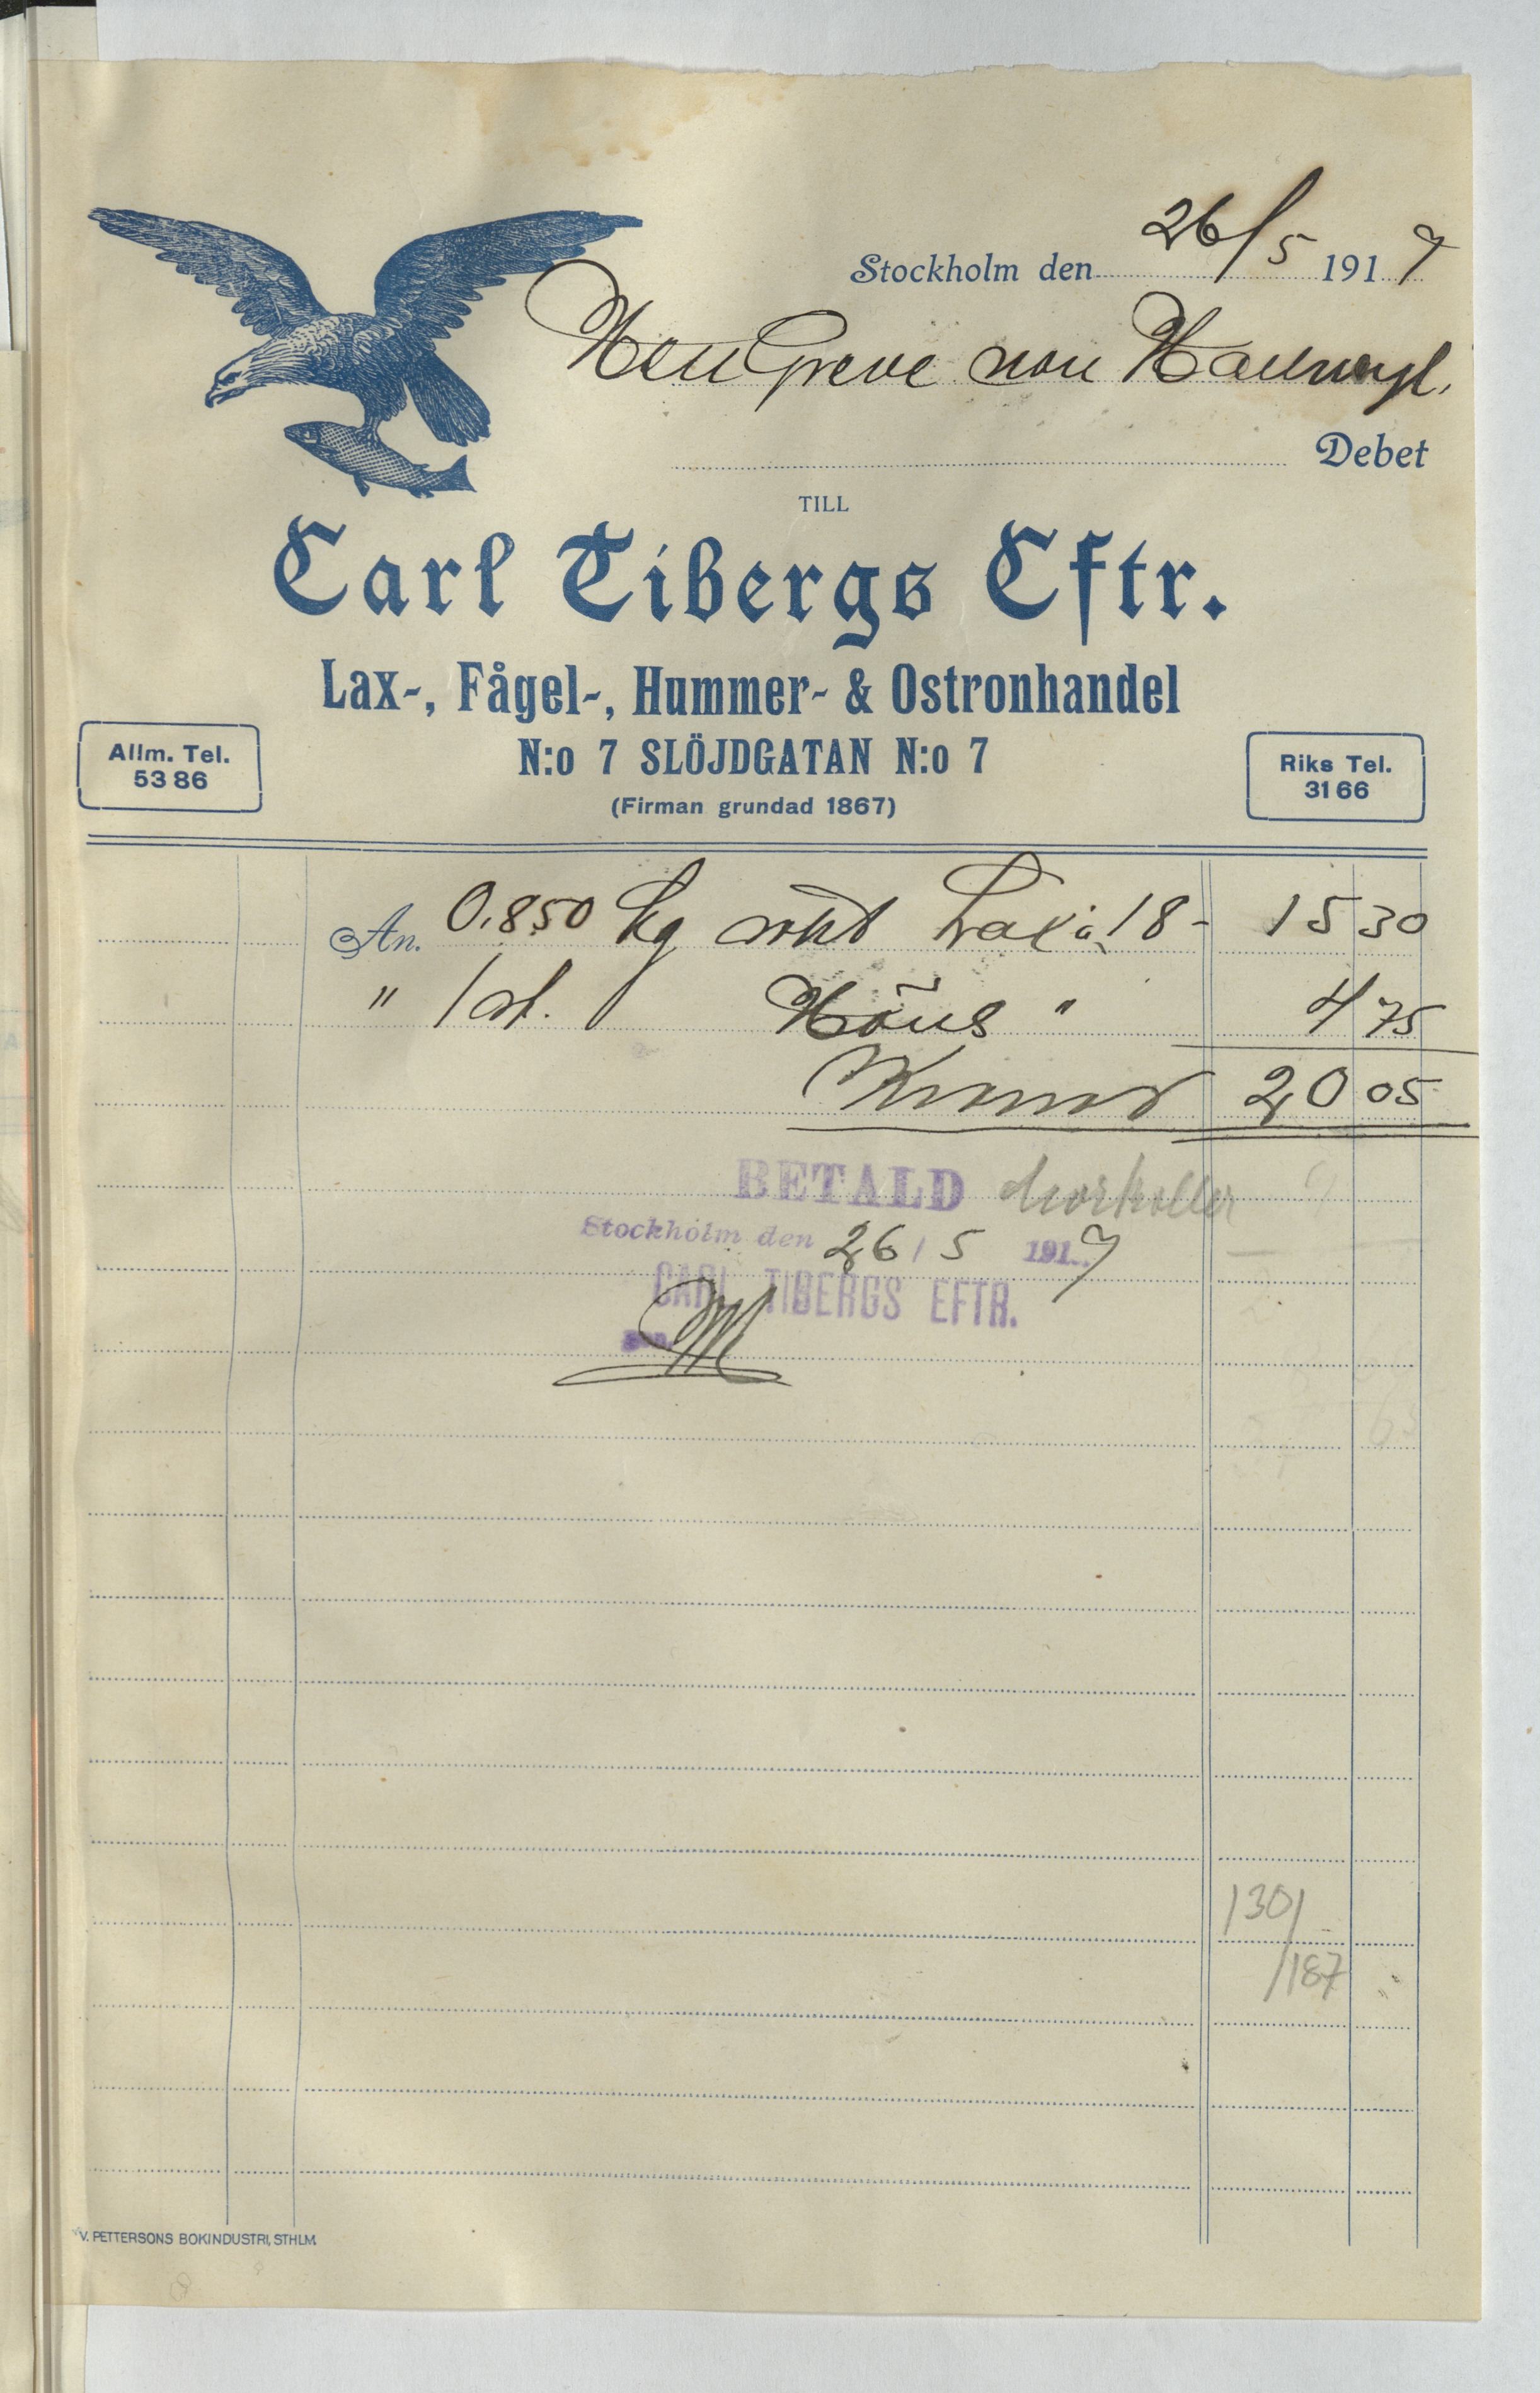 Stockholm den 26/5 1917
Herr Greve von Hallwyl.
Debet
TILL
Carl Tibergs Eftr.
Lax-, Fågel-, Hummer- & Ostronhandel
N:o 7 SLÖJDGATAN N:o 7
(Firman grundad 1867)
Allm. Tel.
53 86
Riks Tel.
31 66
An. 0,850 kg rökt Lax à 18- 15 30
" 1 st. Höns " 4 75
Kronor 20 05
BETALD
Stockholm den 26/5 1917
CARL TIBERGS EFTR.
1301
/187
V. PETTERSONS BOKINDUSTRI, STHLM